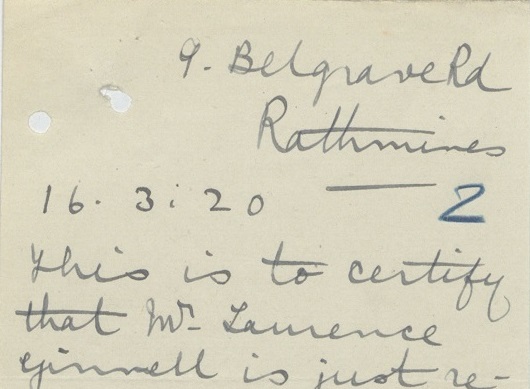 9. Belgrave Rd
Rathmines
16. 3: 20
2
This is to certify
that Mr. Laurence
Ginnell is just re-